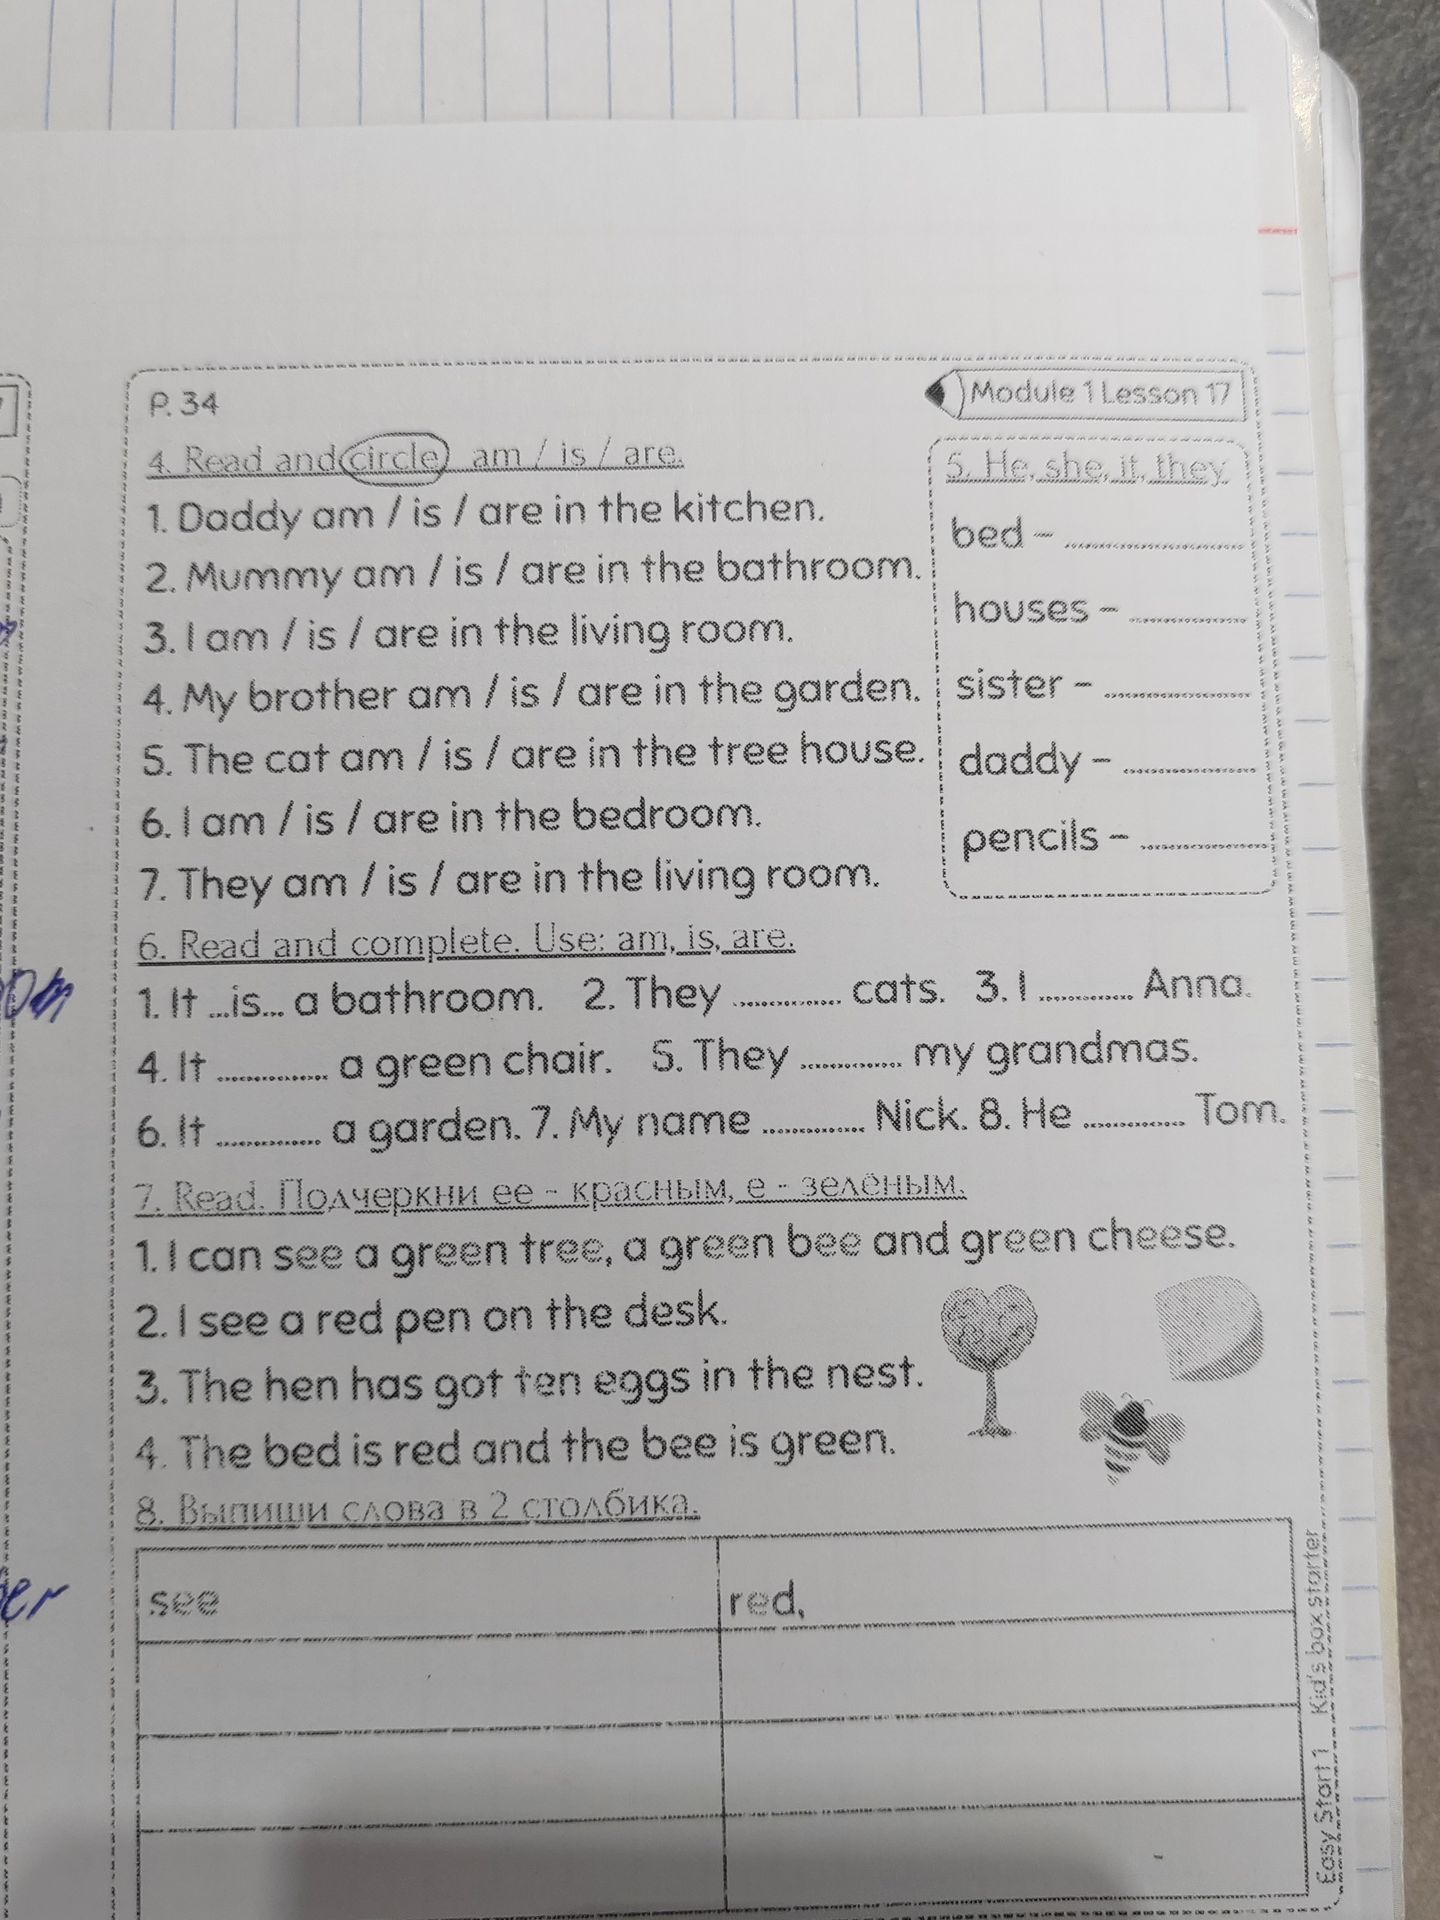 P. 34
Module 1 Lesson 17
4. Read and circle am / is / are.
1. Daddy am / is / are in the kitchen.
2. Mummy am / is / are in the bathroom.
3. I am / is / are in the living room.
4. My brother am / is / are in the garden.
5. The cat am / is / are in the tree house.
6. I am / is / are in the bedroom.
7. They am / is / are in the living room.
5. He, she, it, they
bed - ............
houses - ............
sister - ............
daddy - ............
pencils - ............
6. Read and complete. Use: am, is, are.
1. It ...is... a bathroom. 2. They ............ cats. 3. I ............ Anna.
4. It ............ a green chair. 5. They ............ my grandmas.
6. It ............ a garden. 7. My name ............ Nick. 8. He ............ Tom.
7. Read. Подчеркни ee - красным, e - зелёным.
1. I can see a green tree, a green bee and green cheese.
2. I see a red pen on the desk.
3. The hen has got ten eggs in the nest.
4. The bed is red and the bee is green.
8. Выпиши слова в 2 столбика.
see
red,
Easy Start 1 Kid's box starter